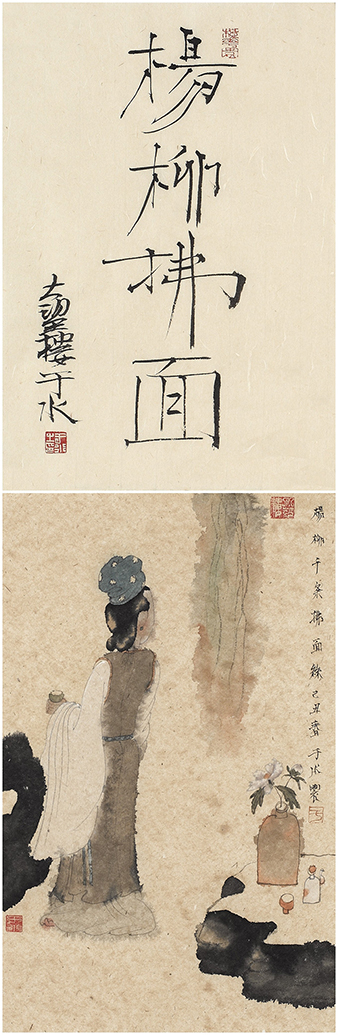 楊柳拂面
大望樓于水
楊柳千条拂面絲己丑春于水